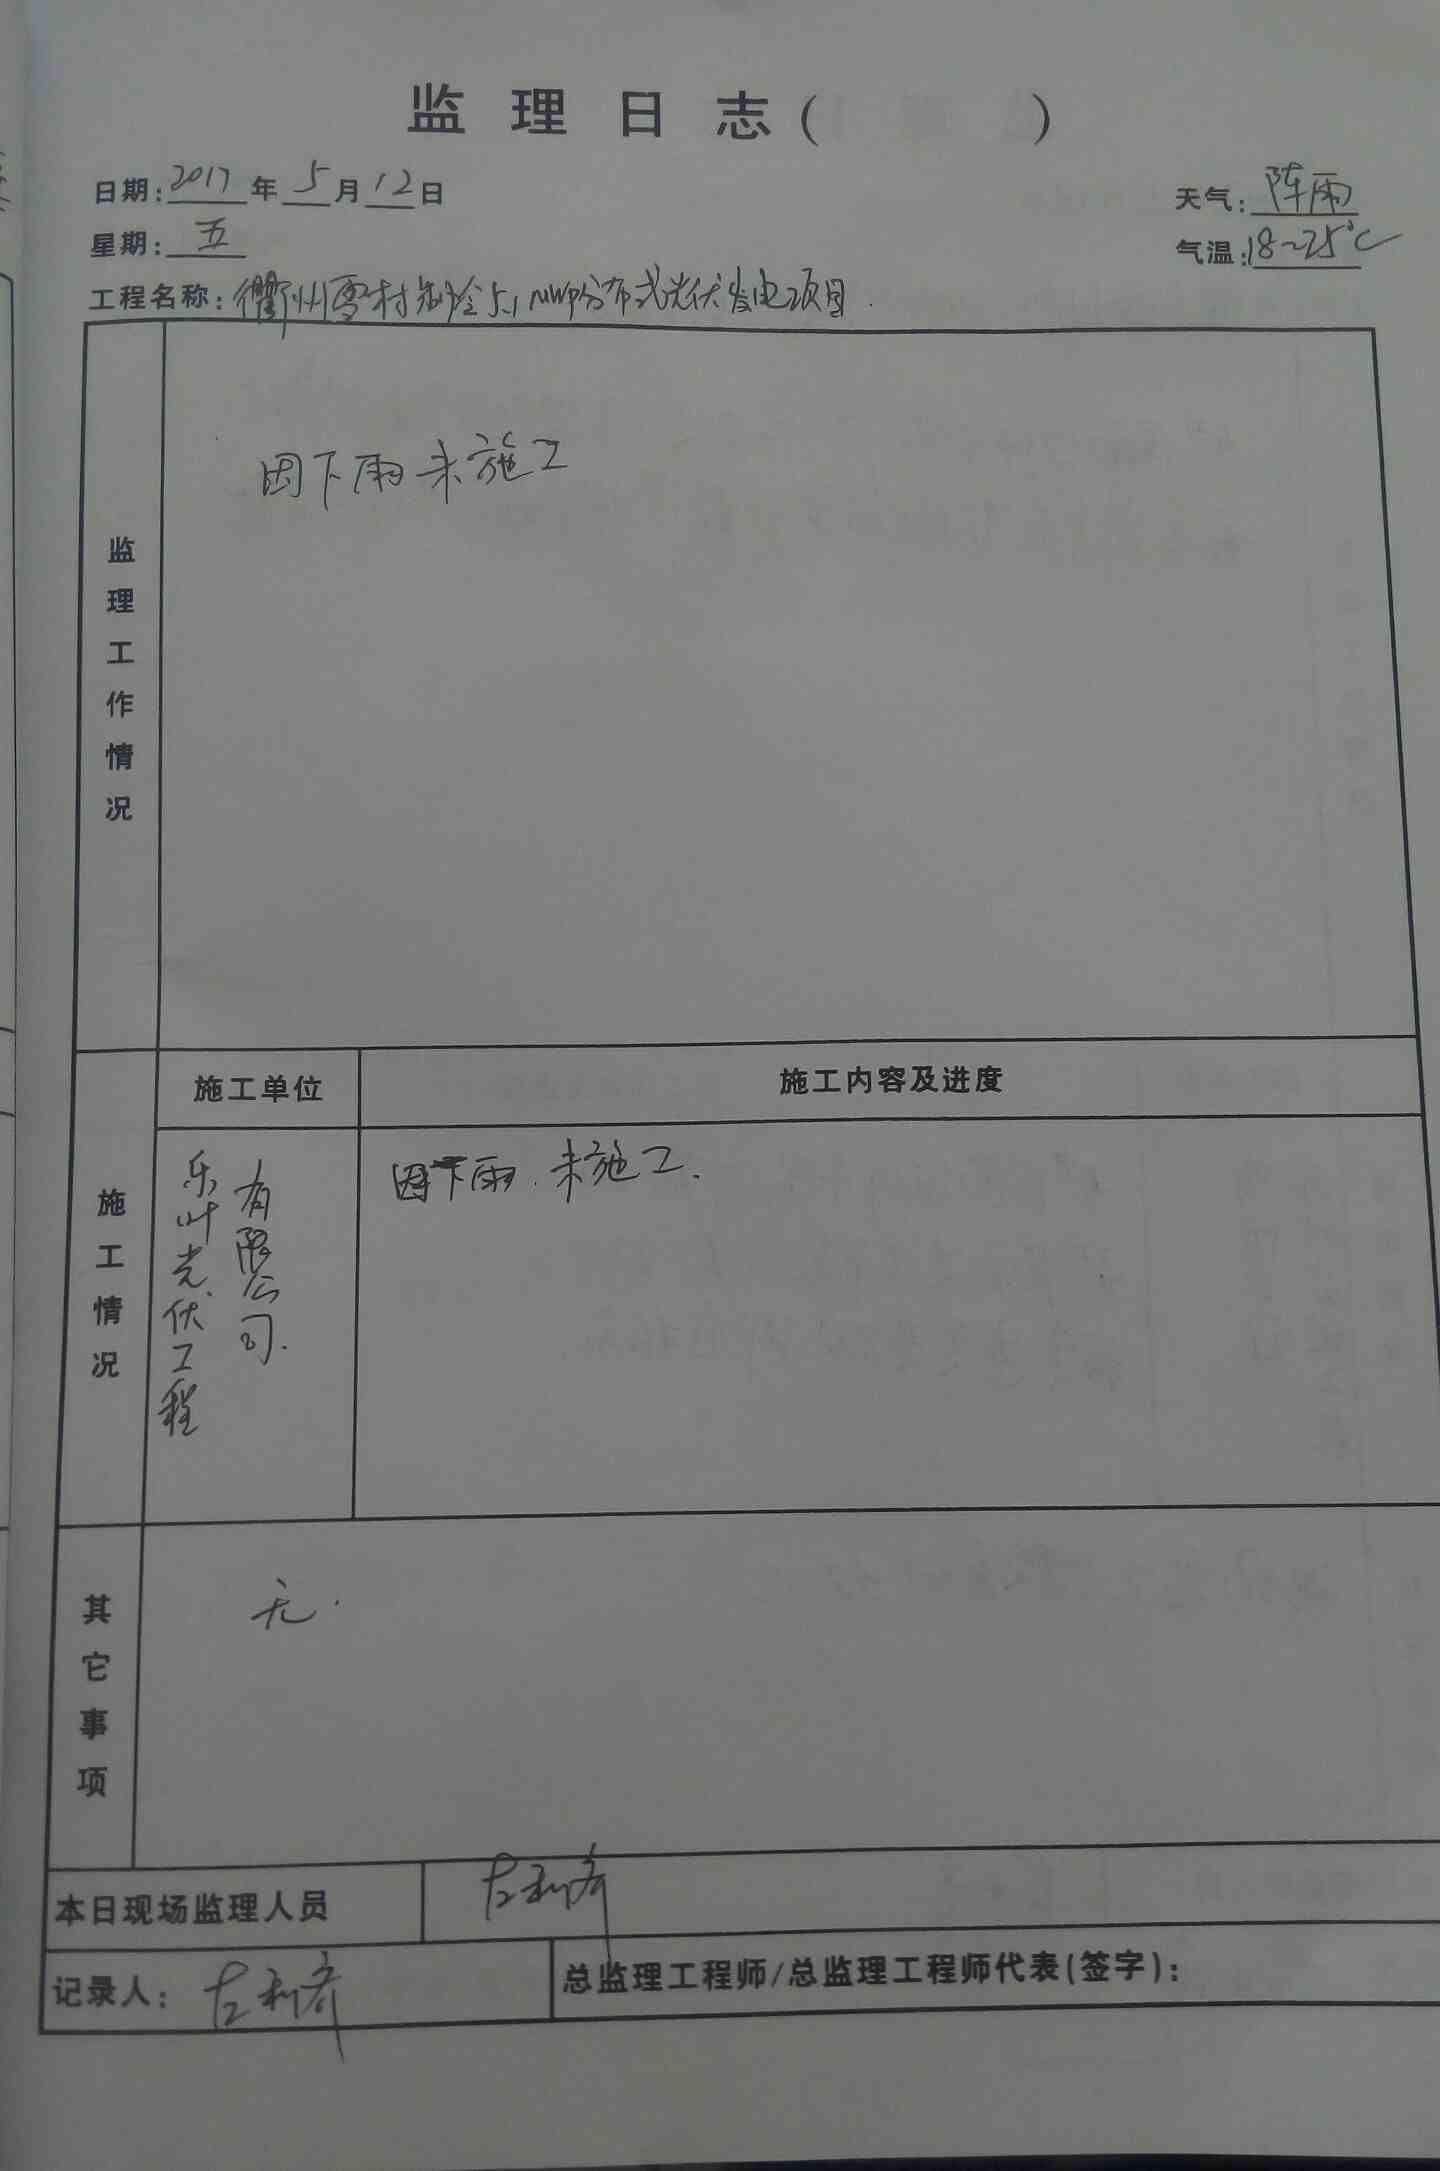 监理日志( )
日期:2017年5月12日
天气:阵雨
星期:五
气温:18~25℃
工程名称:衢州雪村制冷5.1MWP分布式光伏发电项目.
监理工作情况
因下雨未施工
施工情况
施工单位
施工内容及进度
乐叶光伏工程
有限公司.
因下雨.未施工.
其它事项
无.
本日现场监理人员
记录人:
总监理工程师/总监理工程师代表(签字):